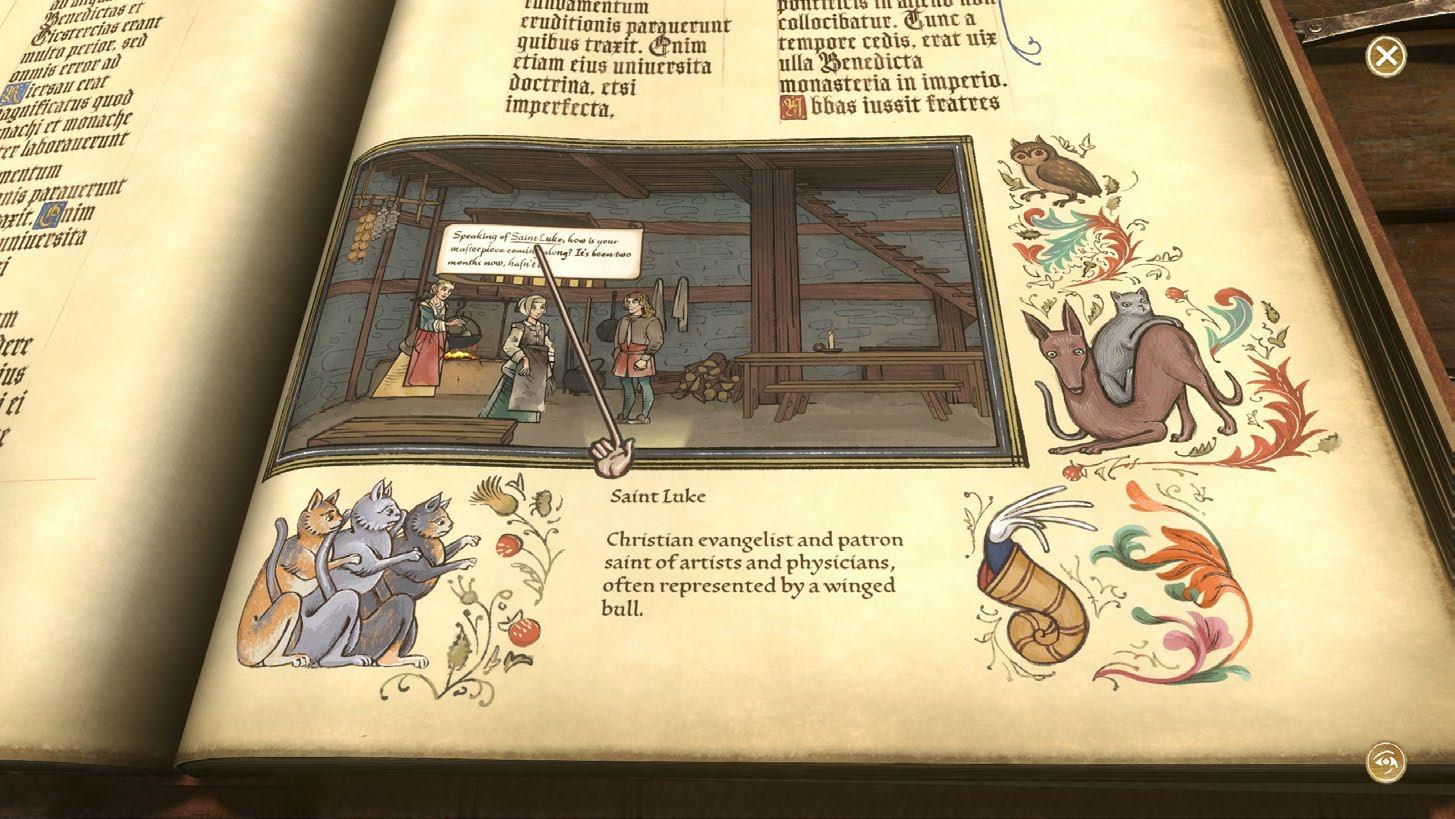 Benedictas et
Cicstercias erant
multo perior, sed
onmis error ad
Hiersau erat
magnificatus quod
machi et monache
ter laborauerunt
mentum
nis parauerunt
axit. Enim
uniuersita
fundamentum
eruditionis parauerunt
quibus traxit. Enim
etiam eius uniuersita
doctrina, etsi
imperfecta,
pontificis in aliено non
collocibatur. Tunc a
tempore cedis, erat uix
ulla Benedicta
monasteria in imperio.
Abbas iussit fratres
Speaking of Saint Luke, how is your
masterpiece coming along? It's been two
months now, hasn't
Saint Luke
Christian evangelist and patron
saint of artists and physicians,
often represented by a winged
bull.